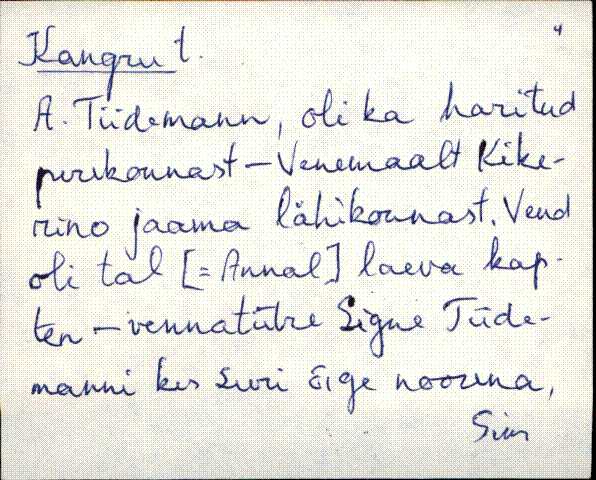 4
Kangru t.
A. Tiidemann, oli ka haritud
perekonnast – Venemaalt Kike-
rino jaama lähikonnast. Vend
oli tal [= Annal] laeva kap-
ten – vennatütre Signe Tiide-
manni kes suri õige noorena,
Siin